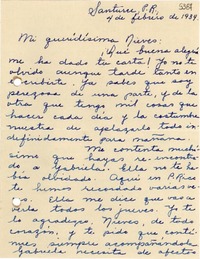 5369
Santurce, P.R.
4 de febrero de 1934
Mi queridísima Nieves:
¡Qué buena alegría
me ha dado tu carta! Yo no te
olvido aunque tarde tanto en
escribirte. Ya sabes que soy
perezosa de una parte, y de la
otra que tengo mil cosas que
hacer cada día y la costumbre
nuestra de aplazarlo todo in-
definidamente para mañana.
Me contenta muchí-
simo que hayas re-encontra-
do a Gabriela. Ella no te ha-
bía olvidado. Aquí en P. Rico
te hemos recordado varias ve-
ces. Ella me dice que vas a
verla todos los jueves. Yo te
lo agradezco, Nieves, de todo
corazón, y te pido que conti-
nues siempre acompañándola.
Gabriela necesita de afectos